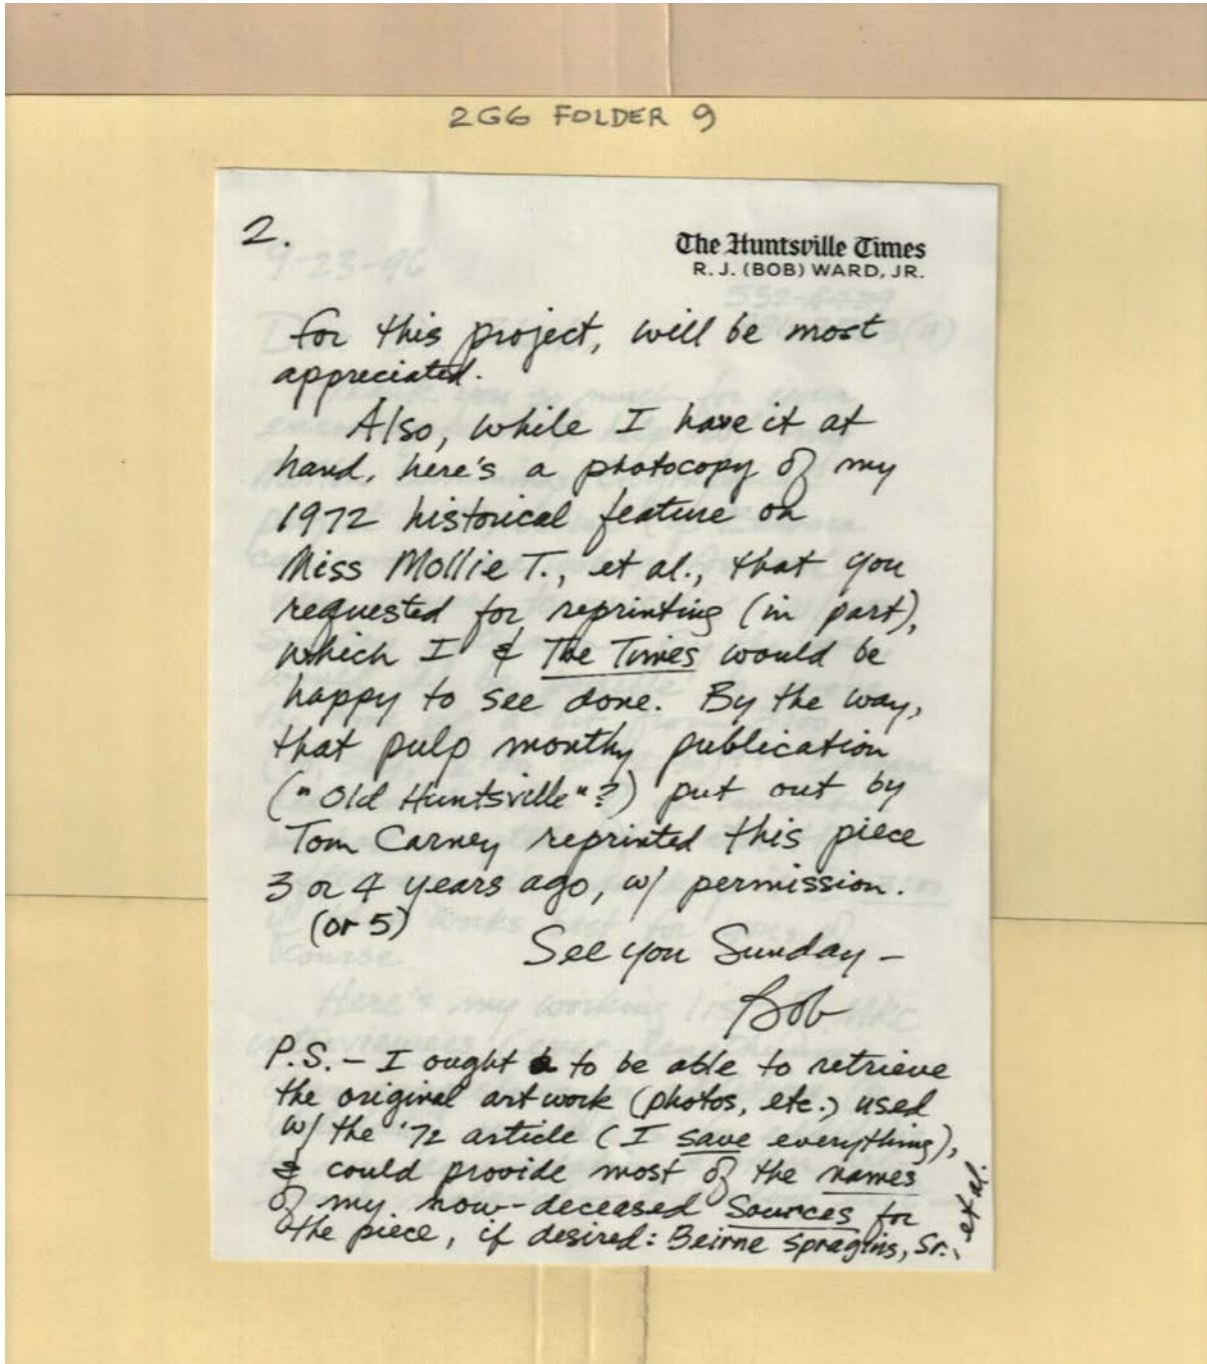 2G6 FOLDER 9
2.
The Huntsville Times
R. J. (BOB) WARD, JR.
9-23-96
for this project, will be most
appreciated.
Also, while I have it at
hand, here's a photocopy of my
1972 historical feature on
Miss Mollie T., et al., that you
requested for reprinting (in part),
which I & The Times would be
happy to see done. By the way,
that pulp monthy publication
("Old Huntsville"?) put out by
Tom Carney reprinted this piece
3 or 4 years ago, w/ permission.
(or 5)
See you Sunday –
Bob
Here's my working
P.S. – I ought to be able to retrieve
the original artwork (photos, etc.) used
w/ the '72 article (I save everything),
& could provide most of the names
of my now-deceased sources for
the piece, if desired: Beirne Spragins, Sr., et al.